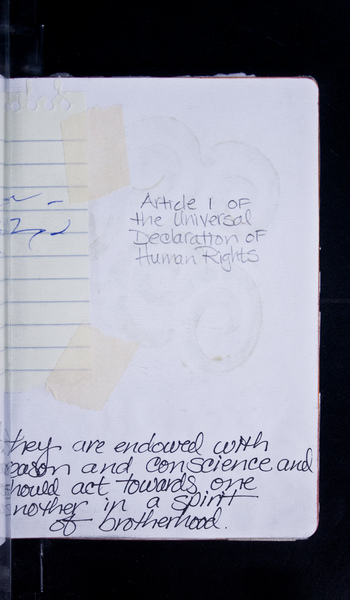 Article 1 OF
the Universal
Declaration OF
Human Rights
they are endowed with
eason and conscience and
hould act towards one
nother in a spirit
of brotherhood.